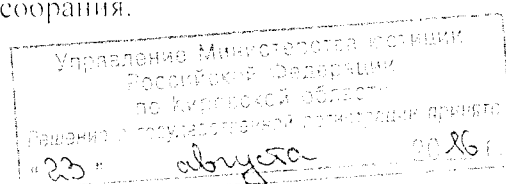 собрания.
Управление Министерства юстиции
Российской Федерации
по Кировской области
Решение о государственной регистрации принято
"23" августа 2016 г.